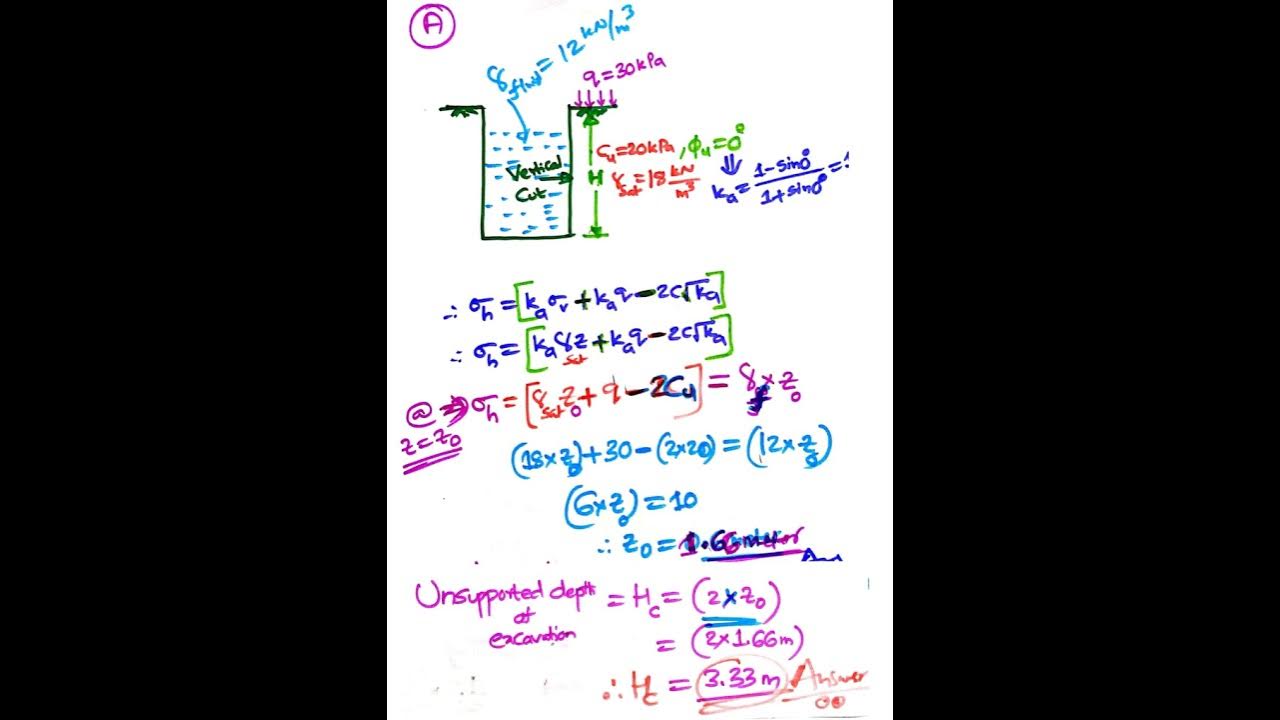 A
γfluid = 12 kN/m³
q = 30 kPa
Cu = 20 kPa, φu = 0°
Vertical Cut
H
γsat = 18 kN/m³
ka = (1 - sin0°)/(1 + sin0°) = 1
∴ σh = [kaσv + kaq - 2c√ka]
∴ σh = [kaγsatz + kaq - 2c√ka]
@ z = z0 ⇒ σh = [γsatz0 + q - 2Cu] = γf × z0
(18 × z0) + 30 - (2×20) = (12 × z0)
(6 × z0) = 10
∴ z0 = 1.66 meter
Unsupported depth of excavation = Hc = (2 × z0)
= (2 × 1.66m)
∴ Hc = 3.33 m Answer